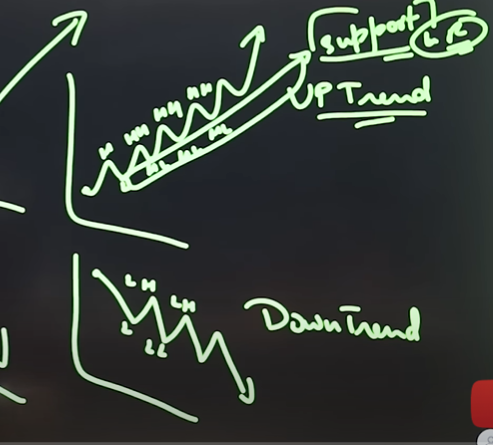 support
UP Trend
H HH HH HH
HL HL HL
LH LH
L LL
DownTrend